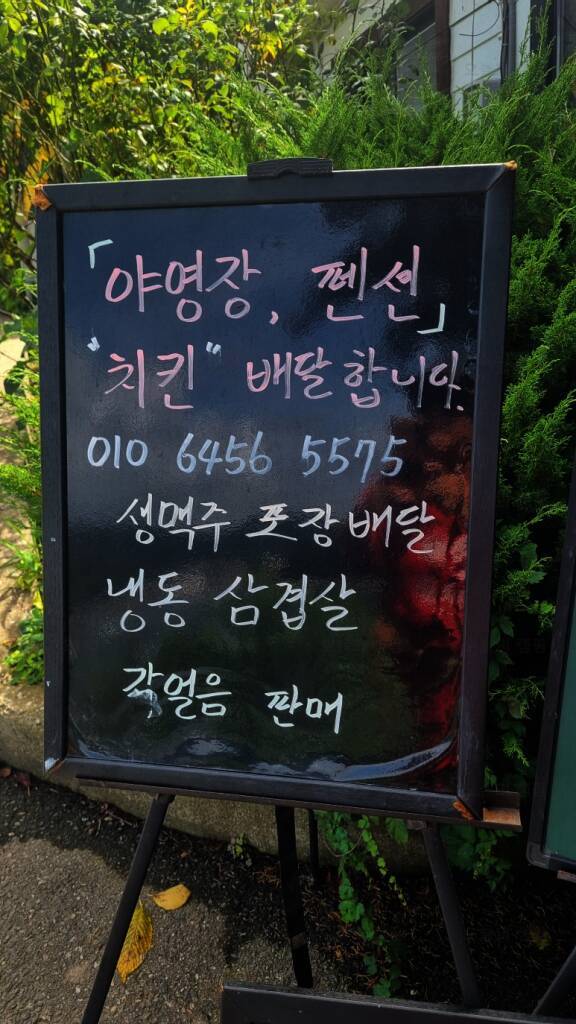 「야영장, 펜션」
"치킨" 배달합니다.
010 6456 5575
생맥주 포장배달
냉동 삼겹살
각얼음 판매